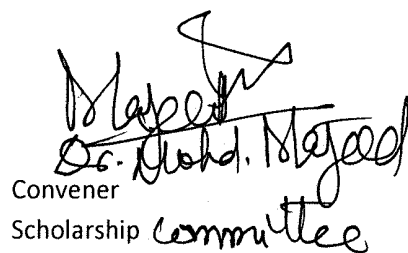 Majeed
Dr. Mohd. Majeed
Convener
Scholarship Committee